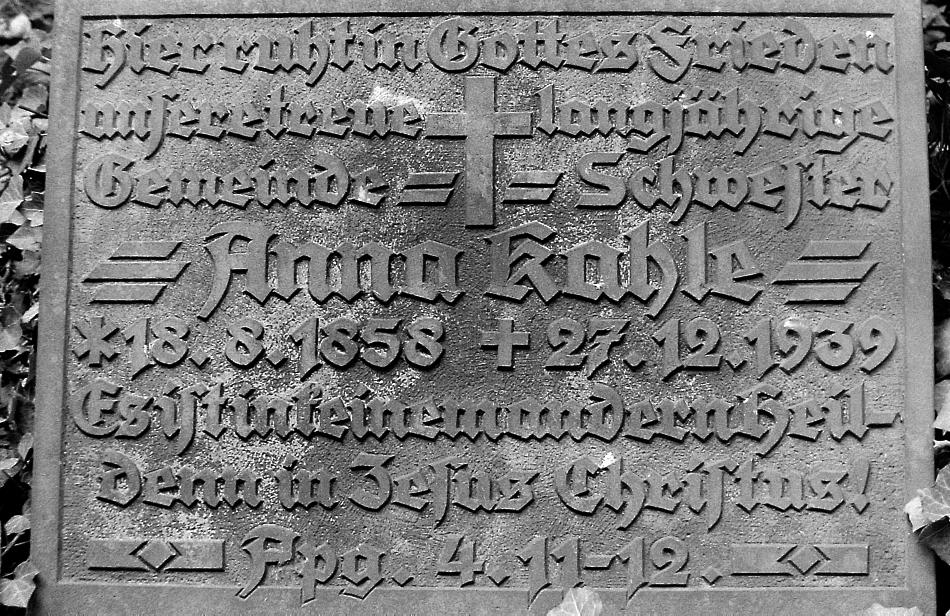 Hier ruht in Gottes Frieden
unsere treue langjährige
Gemeinde = Schwester
Anna Kahle
*18. 8. 1858 ✝ 27. 12. 1939
Es ist in keinem andern Heil-
denn in Jesus Christus!
Apg. 4. 11-12.